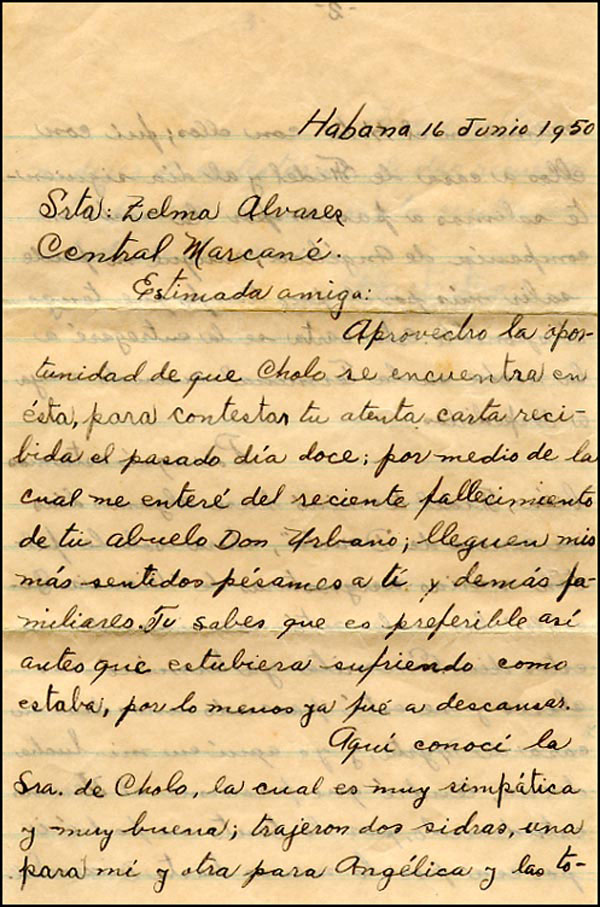 Habana 16 Junio 1950
Srta: Zelma Alvarez
Central Marcané.
Estimada amiga:
Aprovecho la opor-
tunidad de que Cholo se encuentra en
ésta, para contestar tu atenta carta reci-
bida el pasado día doce; por medio de la
cual me enteré del reciente fallecimiento
de tu abuelo Don Urbano; lleguen mis
más sentidos pésames a tí y demás fa-
miliares. Tu sabes que es preferible así
antes que estubiera sufriendo como
estaba, por lo menos ya fué a descansar.
Aquí conocí la
Sra. de Cholo, la cual es muy simpática
y muy buena; trajeron dos sidras, una
para mí y otra para Angélica y las to-